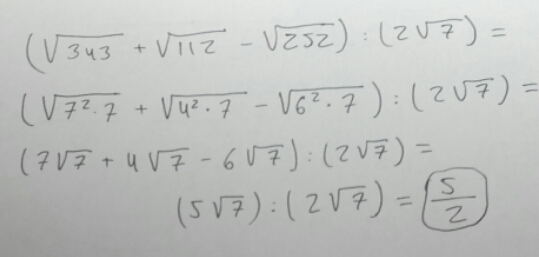 (√343 + √112 − √252) : (2√7) =
(√7²·7 + √4²·7 − √6²·7) : (2√7) =
(7√7 + 4√7 − 6√7) : (2√7) =
(5√7) : (2√7) = 5/2